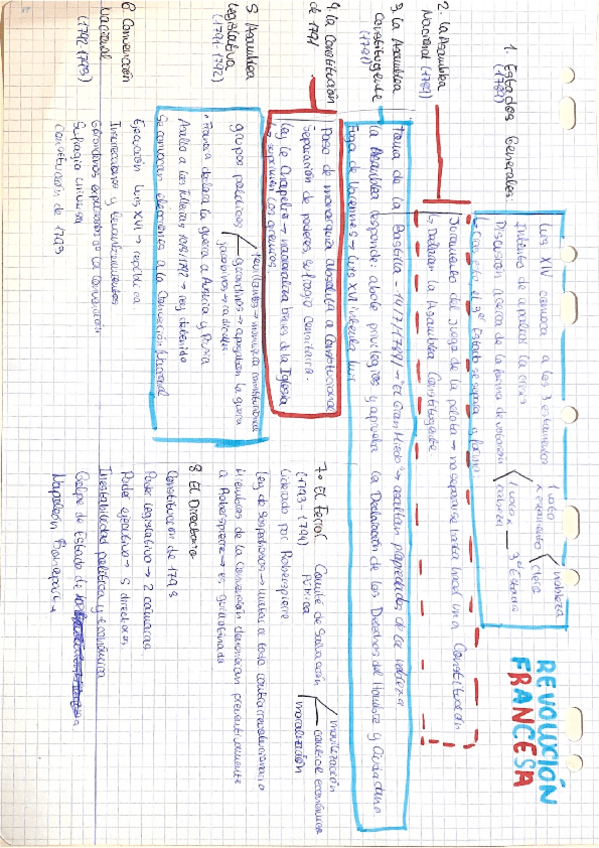 REVOLUCIÓN
FRANCESA
1. Estados Generales:
(1789)
Luis XIV convoca a los 3 estamentos
Intento de aprobar la crisis
Discusión acerca de la forma de votación
1 voto
x estamento
nobleza
clero
1 voto x
cabeza
3er Estado
2. La Asamblea
Nacional (1789)
Juramento del Juego de la pelota → no separarse hasta una Constitución
↳ Declaran la Asamblea Constituyente
3. La Asamblea
Constituyente
(1791)
Toma de la Bastilla - 14/7/1789/ → "El Gran Miedo" → asaltan propiedades de la nobleza
La Asamblea responde: abole privilegios y aprueba la Declaración de los Derechos del Hombre y Ciudadano
Fuga de Varennes → Luis XVI intenta huir
4. La Constitución
de 1791
Paso de monarquía absoluta a Constitucional
Separación de poderes sufragio censitario.
Ley Le Chapelier → nacionaliza bienes de la Iglesia
↳ suprimen los gremios
5 Asamblea
Legislativa
(1791-1792)
grupos políticos
feuillants → monarquía constitucional
girondinos → apoyaban la guerra
jacobinos →
• Francia declara la guerra a Austria y Prusia
Asalto a las Tullerías, → rey detenido
Se convocan elecciones a la Convención Nacional
6 Convención
Nacional
(1792-1793)
Ejecución Luis XVI → república
Insurrecciones y levantamientos
Girondinos expulsados de la Convención
Sufragio universal
Constitución de 1793
7. El Terror
(1793-1794)
Liderado por Robespierre
Comité de Salvación
Pública
movilización
control económico
moralización
Ley de Sospechosos → matar a todo contrarrevolucionario
Miembros de la Convención denuncian preventivamente
a Robespierre → es guillotinado
8 El Directorio
Constitución de 1793
Poder legislativo → 2 cámaras
Poder ejecutivo → 5 directores
Inestabilidad política y económica
Golpe de Estado de
Napoleón Bonaparte